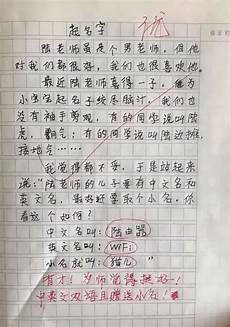 起名字
陆老师虽是个男老师，但他
对我们都很好，我们也很喜欢他。
最近陆老师喜得一子，他为
小宝宝起名子绞尽脑汁，我们也
没有袖手旁观，有的同学说叫陆
虎，霸气；有的同学说叫陆边摊，
接地气……
我觉得都不妥，于是站起来
说："陆老师的儿子要有中文名和
英文名，最好还要取个小名，你
看这个如何？
中文名叫：陆由器
英文名叫：WiFi
小名就叫：猫儿"
有才！为师觉得挺好！
中英文双语且赠送小名！